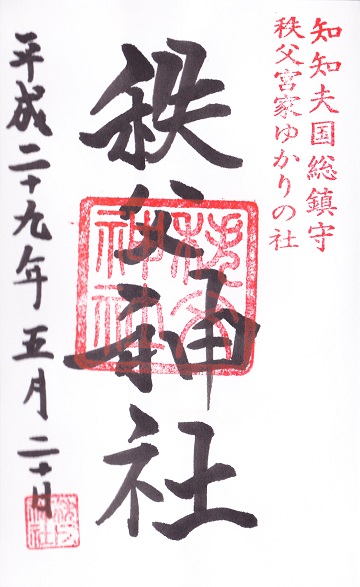 知知夫国総鎮守
秩父宮家ゆかりの社
秩父神社
平成二十九年五月二十日
秩父神社